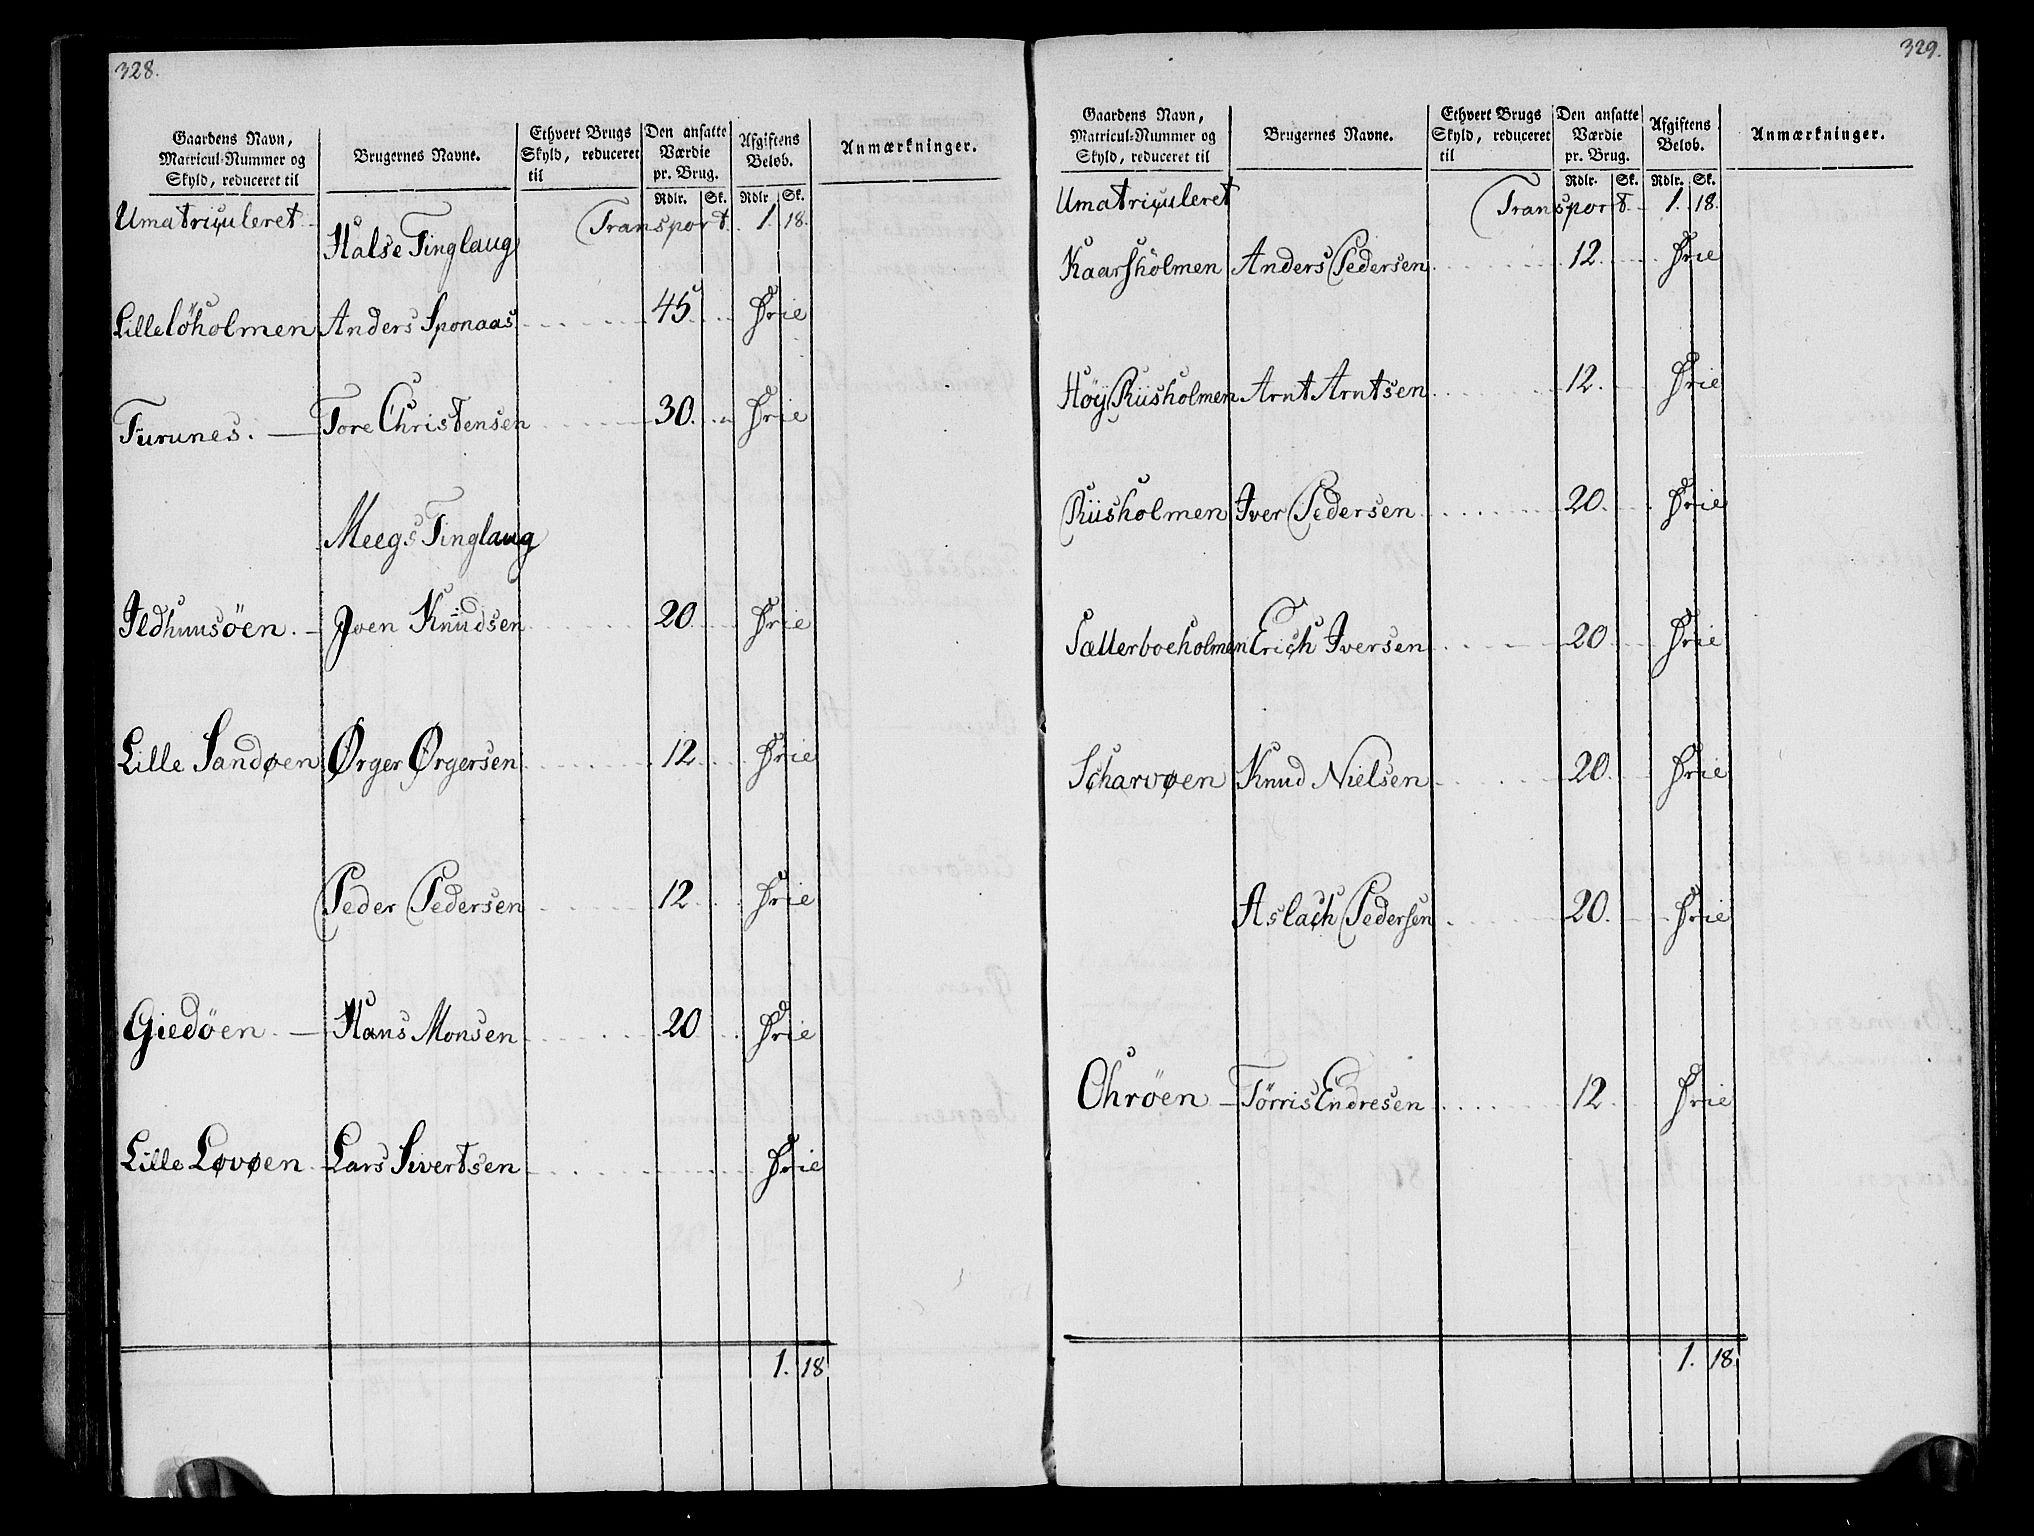 328.
Gaardens Navn, Matricul-Nummer og Skyld, reduceret til | Brugernes Navne. | Ethvert Brugs Skyld, reduceret til | Den ansatte Værdie pr. Brug. Rdlr. Sk. | Afgiftens Beløb. Rdlr. Sk. | Anmærkninger.
Umatriculeret Transport 1. 18.
Halse Tinglaug
Lille löholmen Anders Sponaas 45 Frie
Furunes. Tore Christensen 30. Frie
Meegs Tinglaug
Ildhuusöen. Joen Knudsen 20 Frie
Lille Sandøen Ørger Ørgersen 12 Frie
Peder Pedersen 12 Frie
Giedöen Hans Monsen 20 Frie
Lille Løvøen Lars Sivertsen Frie
1. 18
329.
Gaardens Navn, Matricul-Nummer og Skyld, reduceret til | Brugernes Navne. | Ethvert Brugs Skyld, reduceret til | Den ansatte Værdie pr. Brug. Rdlr. Sk. | Afgiftens Beløb. Rdlr. Sk. | Anmærkninger.
Umatriculeret Transport 1. 18.
Kaarsholmen Anders Pedersen 12. Frie
Høy Riisholmen Arnt Arntsen 12. Frie
Riisholmen Iver Pedersen 20. Frie
Sætterboeholmen Erich Iversen 20 Frie
Scharvøen Knud Nielsen 20. Frie
Aslach Pedersen 20. Frie
Ohröen Tørris Endresen 12 Frie
1. 18